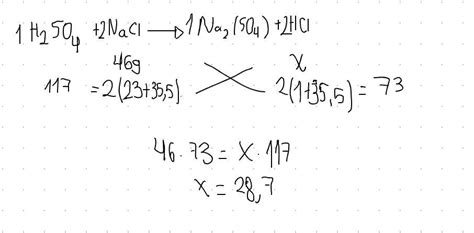 1 H₂SO₄ + 2NaCl → 1 Na₂(SO₄) + 2HCl
46g x
117 = 2(23+35,5) 2(1+35,5) = 73
46 · 73 = x · 117
x = 28,7